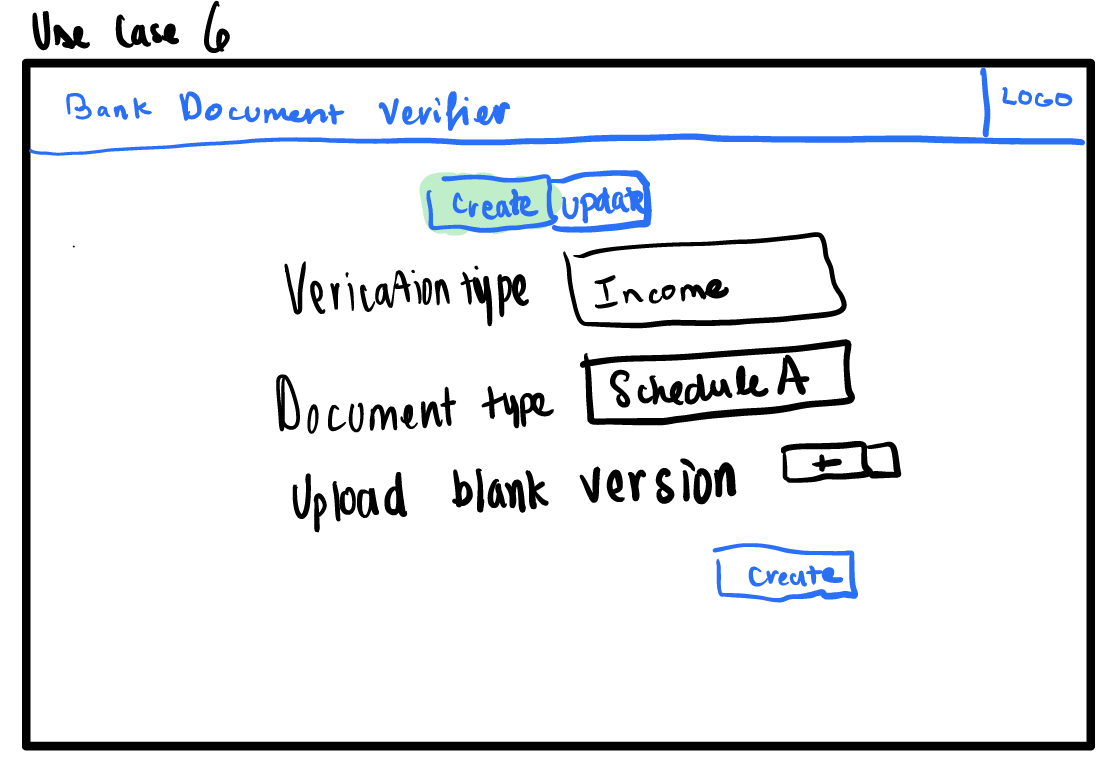 Use Case 6
Bank Document Verifier LOGO
Create update
Verication type Income
Document type Schedule A
Upload blank version +
Create